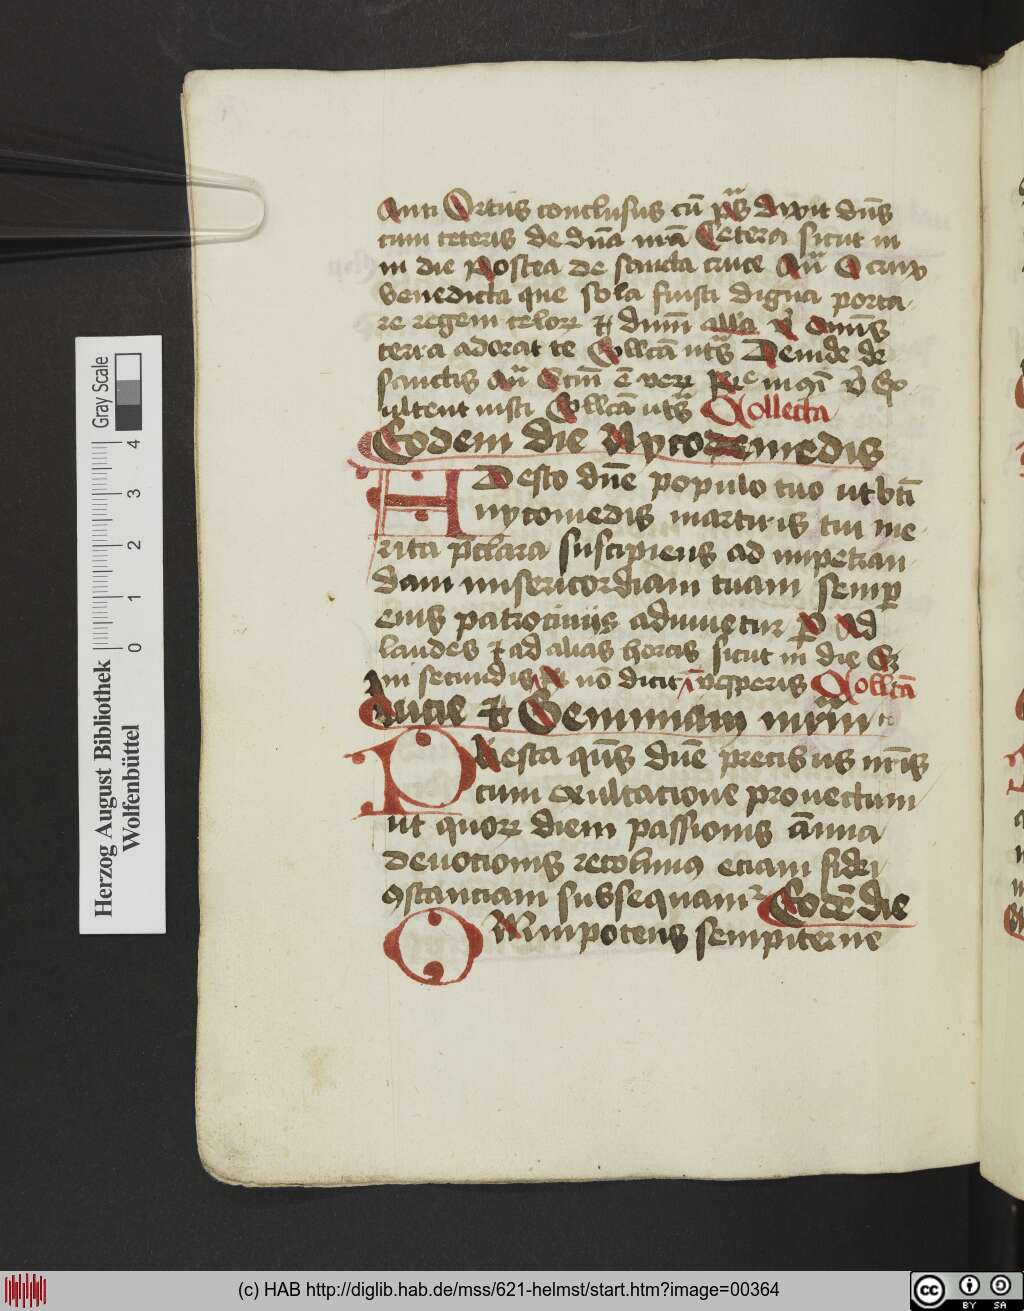 Anti Ortus conclusus cū ps̄ dixit dūs
cum ceteris de dn̄a nr̄a Cetera sicut in
in die Postea de sancta cruce An̄ O crux
benedicta que sola fuisti digna porta
re regem celorꝝ ⁊ dnm̄ alla v̄ Omnis
terra adorat te Collcā uts̄ Deinde de
sanctis An̄ ē verꝝ v̄ Ex
ultent iusti Collcā uts̄ Collecta
Eodem die Nycomedis
Adesto dn̄e populo tuo ut btī
nycomedis martiris tui me
rita pclara suscipiens ad impetran
dam misericordiam tuam semꝑ
eius patrociniis adiuuetur P Ad
laudes ⁊ ad alias horas sicut in die
in secundis nō dicit vesperis Collcā
⁊ Geminiani mr̄m
Adesta qus̄ dn̄e precibus nr̄is
cum exultacione prouectum
ut quorꝝ diem passionis ānua
deuotionis recolimus eciam fidei
ꝯstanciam subsequamur Eodē die
Omnipotens sempiterne
Gray Scale
0 1 2 3 4
Herzog August Bibliothek
Wolfenbüttel
(c) HAB http://diglib.hab.de/mss/621-helmst/start.htm?image=00364
cc BY SA